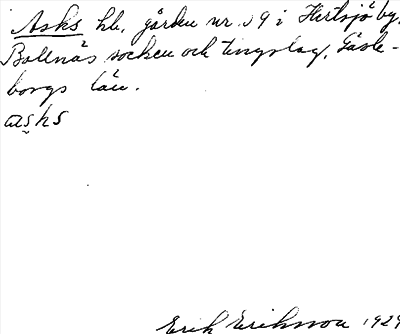 Asks hb. gården nr. 19 i Hertsjö by,
Bollnäs socken och tingslag, Gävle-
borgs län.
as̬ks
Erik Eriksson 1929